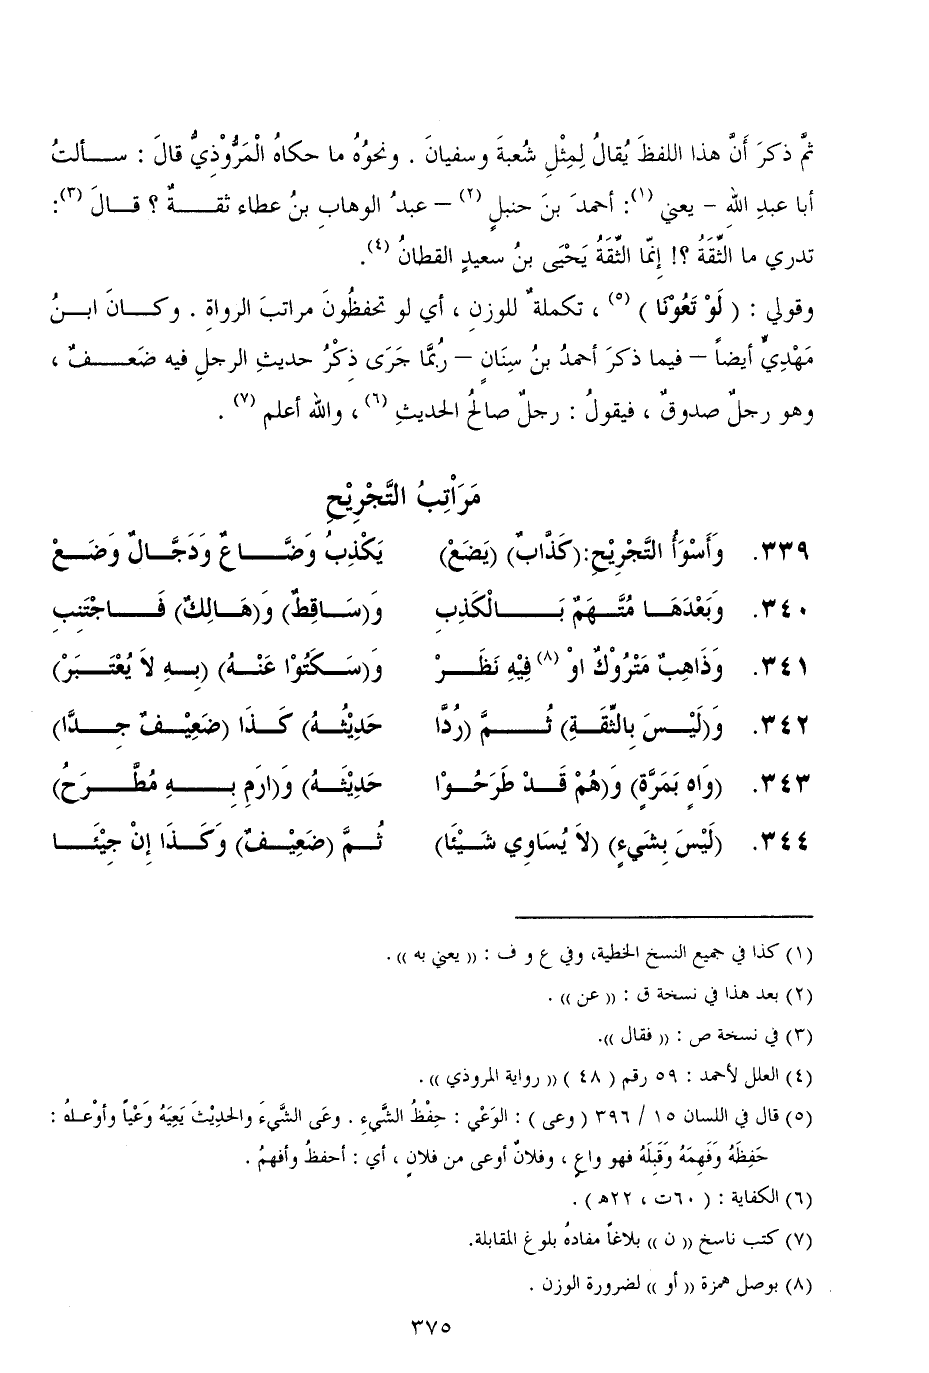 ثمَّ ذكرَ أنَّ هذا اللفظَ يُقالُ لِمِثْلِ شُعبةَ وسفيانَ . ونحوُهُ ما حكاهُ الْمَرُّوْذيُّ قالَ : ســألتُ
أبا عبدِ اللهِ - يعني (١): أحمدَ بنَ حنبلٍ (٢) – عبدُ الوهابِ بنُ عطاء ثقــةٌ ؟ قــالَ (٣):
تدري ما الثِّقَةُ ؟! إنَّما الثِّقَةُ يَحْيَى بنُ سعيدٍ القطانُ (٤).
وقولي : ( لَوْ تَعُوْنَا ) (٥) ، تكملةٌ للوزنِ ، أي لو تحفظُونَ مراتبَ الرواةِ . وكــانَ ابــنُ
مَهْدِيٍّ أيضاً – فيما ذكرَ أحمدُ بنُ سِنَانٍ – ربُمَّا جَرَى ذِكْرُ حديثِ الرجلِ فيه ضَعــفٌ ،
وهو رجلٌ صدوقٌ ، فيقولُ : رجلٌ صالحُ الحديثِ (٦) ، والله أعلم (٧) .
مَرَاْتِبُ التَّجْرِيْحِ
٣٣٩. وَأَسْوَأُ التَّجْرِيْحِ:(كَذَّابٌ) (يَضَعْ) يَكْذِبُ وَضَّــاعٌ وَدَجَّــالٌ وَضَــعْ
٣٤٠. وَبَعْدَهَــا مُتَّــهَمٌ بَــالْكَذِبِ وَ(سَــاقِطٌ) وَ(هَــالِكٌ) فَــاجْتَنِبِ
٣٤١. وَذَاهِبٌ مَتْرُوْكٌ اوْ (٨) فِيْهِ نَظَــرْ وَ(سَــكَتُوْا عَنْــهُ) (بِــهِ لاَ يُعْتَبَرْ)
٣٤٢. وَ(لَيْــسَ بِالثِّقَــةِ) ثُــمَّ (رُدَّا حَدِيْثُــهُ) كَــذَا (ضَعِيْــفٌ جِــدَّا)
٣٤٣. (وَاهٍ بَمَرَّةٍ) وَ(هُمْ قَــدْ طَرَحُــوْا حَدِيْثَــهُ) وَ(ارَمِ بِــهِ مُطَّــرَحُ)
٣٤٤. (لَيْسَ بِشَيءٍ) (لاَ يُسَاوِي شَــيْئَا) ثُــمَّ (ضَعِيْــفٌ) وَكَــذَا إِنْ جِيْئَــا
(١) كذا في جميع النسخ الخطية، وفي ع و ف : (( يعني به )) .
(٢) بعد هذا في نسخة ق : (( عن )) .
(٣) في نسخة ص : (( فقال )).
(٤) العلل لأحمد : ٥٩ رقم ( ٤٨ ) (( رواية المروذي )) .
(٥) قال في اللسان ١٥ / ٣٩٦ ( وعى ) : الوَعْي : حِفْظُ الشَّيءِ . وعَى الشَّيءَ والحديْثَ يَعِيَهُ وَعْياً وأوْعــاهُ :
حَفِظَهُ وَفَهِمَهُ وَقَبِلَهُ فهو واعٍ ، وفلانٌ أوعى من فلانٍ ، أي : أحفظُ وأفهمُ .
(٦) الكفاية : ( ٦٠ت ، ٢٢هـ ) .
(٧) كتب ناسخ (( ن )) بلاغاً مفادهُ بلوغ المقابلة.
(٨) بوصل همزة (( أو )) لضرورة الوزن .
٣٧٥